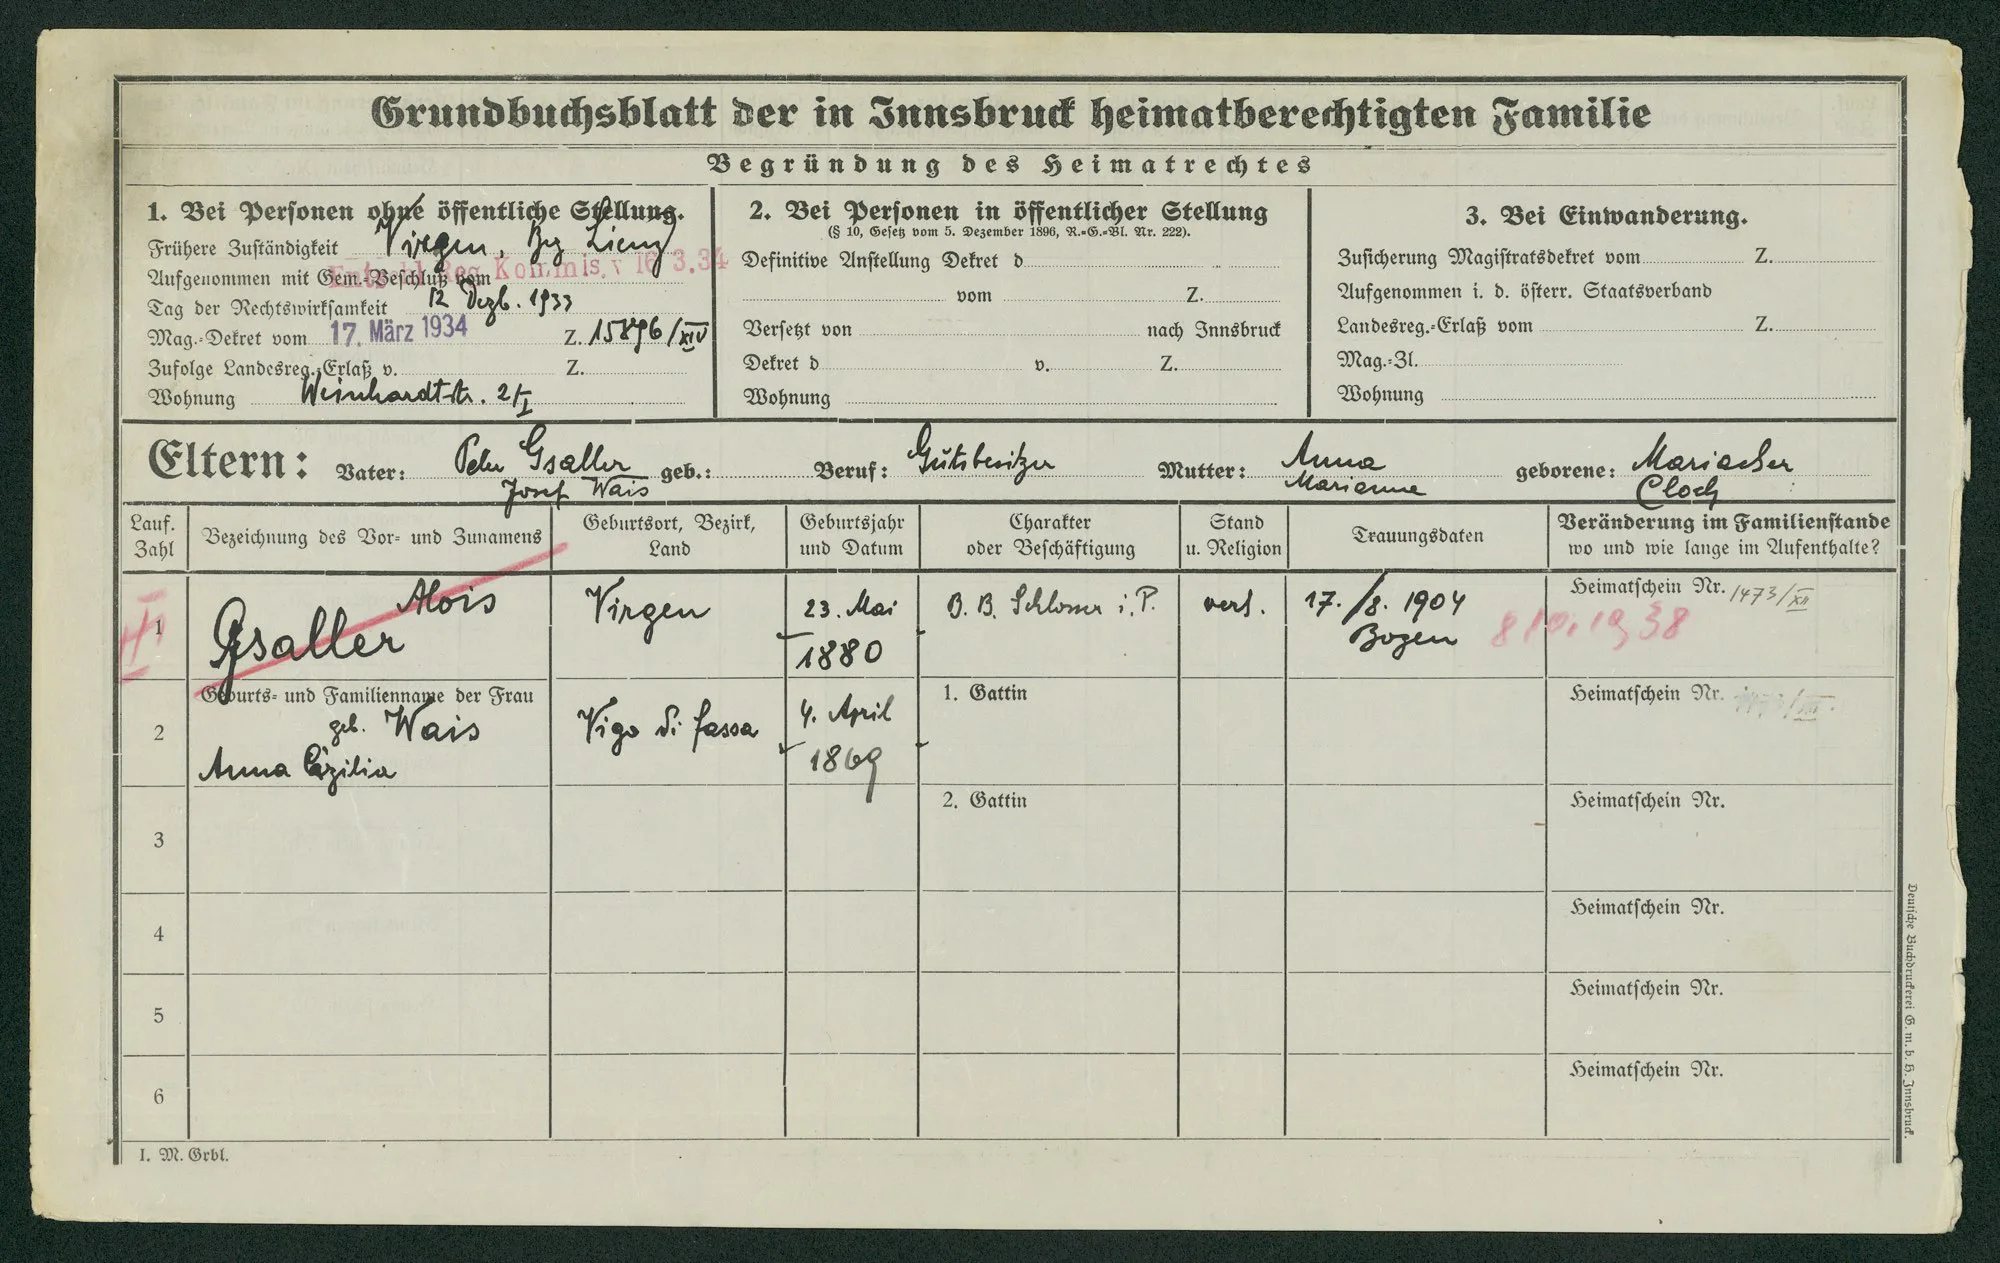 Grundbuchsblatt der in Innsbruck heimatberechtigten Familie
Begründung des Heimatrechtes
1. Bei Personen ohne öffentliche Stellung.
Frühere Zuständigkeit Virgen, Bez Lienz
Aufgenommen mit Gem.-Beschluß vom Entschl. Reg. Kommis. v 16.3.34
Tag der Rechtswirksamkeit 12 Dezb. 1933
Mag.-Dekret vom 17. März 1934 Z. 15896/XIV
Zufolge Landesreg.-Erlaß v. Z.
Wohnung Weinhardtstr. 2/I
2. Bei Personen in öffentlicher Stellung
(§ 10, Gesetz vom 5. Dezember 1896, R.=G.=Bl. Nr. 222).
Definitive Anstellung Dekret d
vom Z.
Versetzt von nach Innsbruck
Dekret d v. Z.
Wohnung
3. Bei Einwanderung.
Zusicherung Magistratsdekret vom Z.
Aufgenommen i. d. österr. Staatsverband
Landesreg.-Erlaß vom Z.
Mag.-Zl.
Wohnung
Eltern: Vater: Peter Gsaller geb.: Beruf: Gutsbesitzer Mutter: Anna geborene: Mariacher
Josef Wais Marianne Cloch
Lauf. Zahl
Bezeichnung des Vor- und Zunamens
Geburtsort, Bezirk, Land
Geburtsjahr und Datum
Charakter oder Beschäftigung
Stand u. Religion
Trauungsdaten
Veränderung im Familienstande
wo und wie lange im Aufenthalte?
1 Alois Gsaller Virgen 23. Mai 1880 B. B. Schlosser i. P. verh. 17./8. 1904 Bozen Heimatschein Nr. 1473/XII
8 10. 1938
Geburts- und Familienname der Frau
2 geb. Wais Vigo di fassa 4. April 1869 1. Gattin Heimatschein Nr.
Anna Cäzilia
3 2. Gattin Heimatschein Nr.
4 Heimatschein Nr.
5 Heimatschein Nr.
6 Heimatschein Nr.
I. M. Grbl.
Deutsche Buchdruckerei G. m. b. H. Innsbruck.